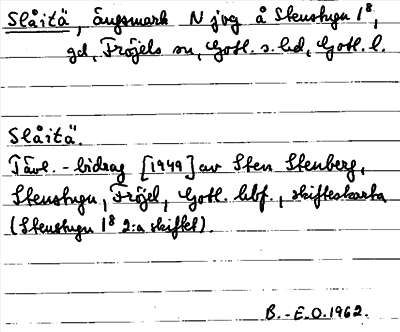 Slåitä, ängsmark N jog å Stenstugu 1⁸,
gd, Fröjels sn, Gotl. s. hd, Gotl. l.
Slåitä.
Tävl.-bidrag [1949] av Sten Stenberg,
Stenstugu, Fröjel, Gotl. hbf., skifteskarta
(Stenstugu 1⁸ 2:a skiftet).
B.-E.O. 1962.